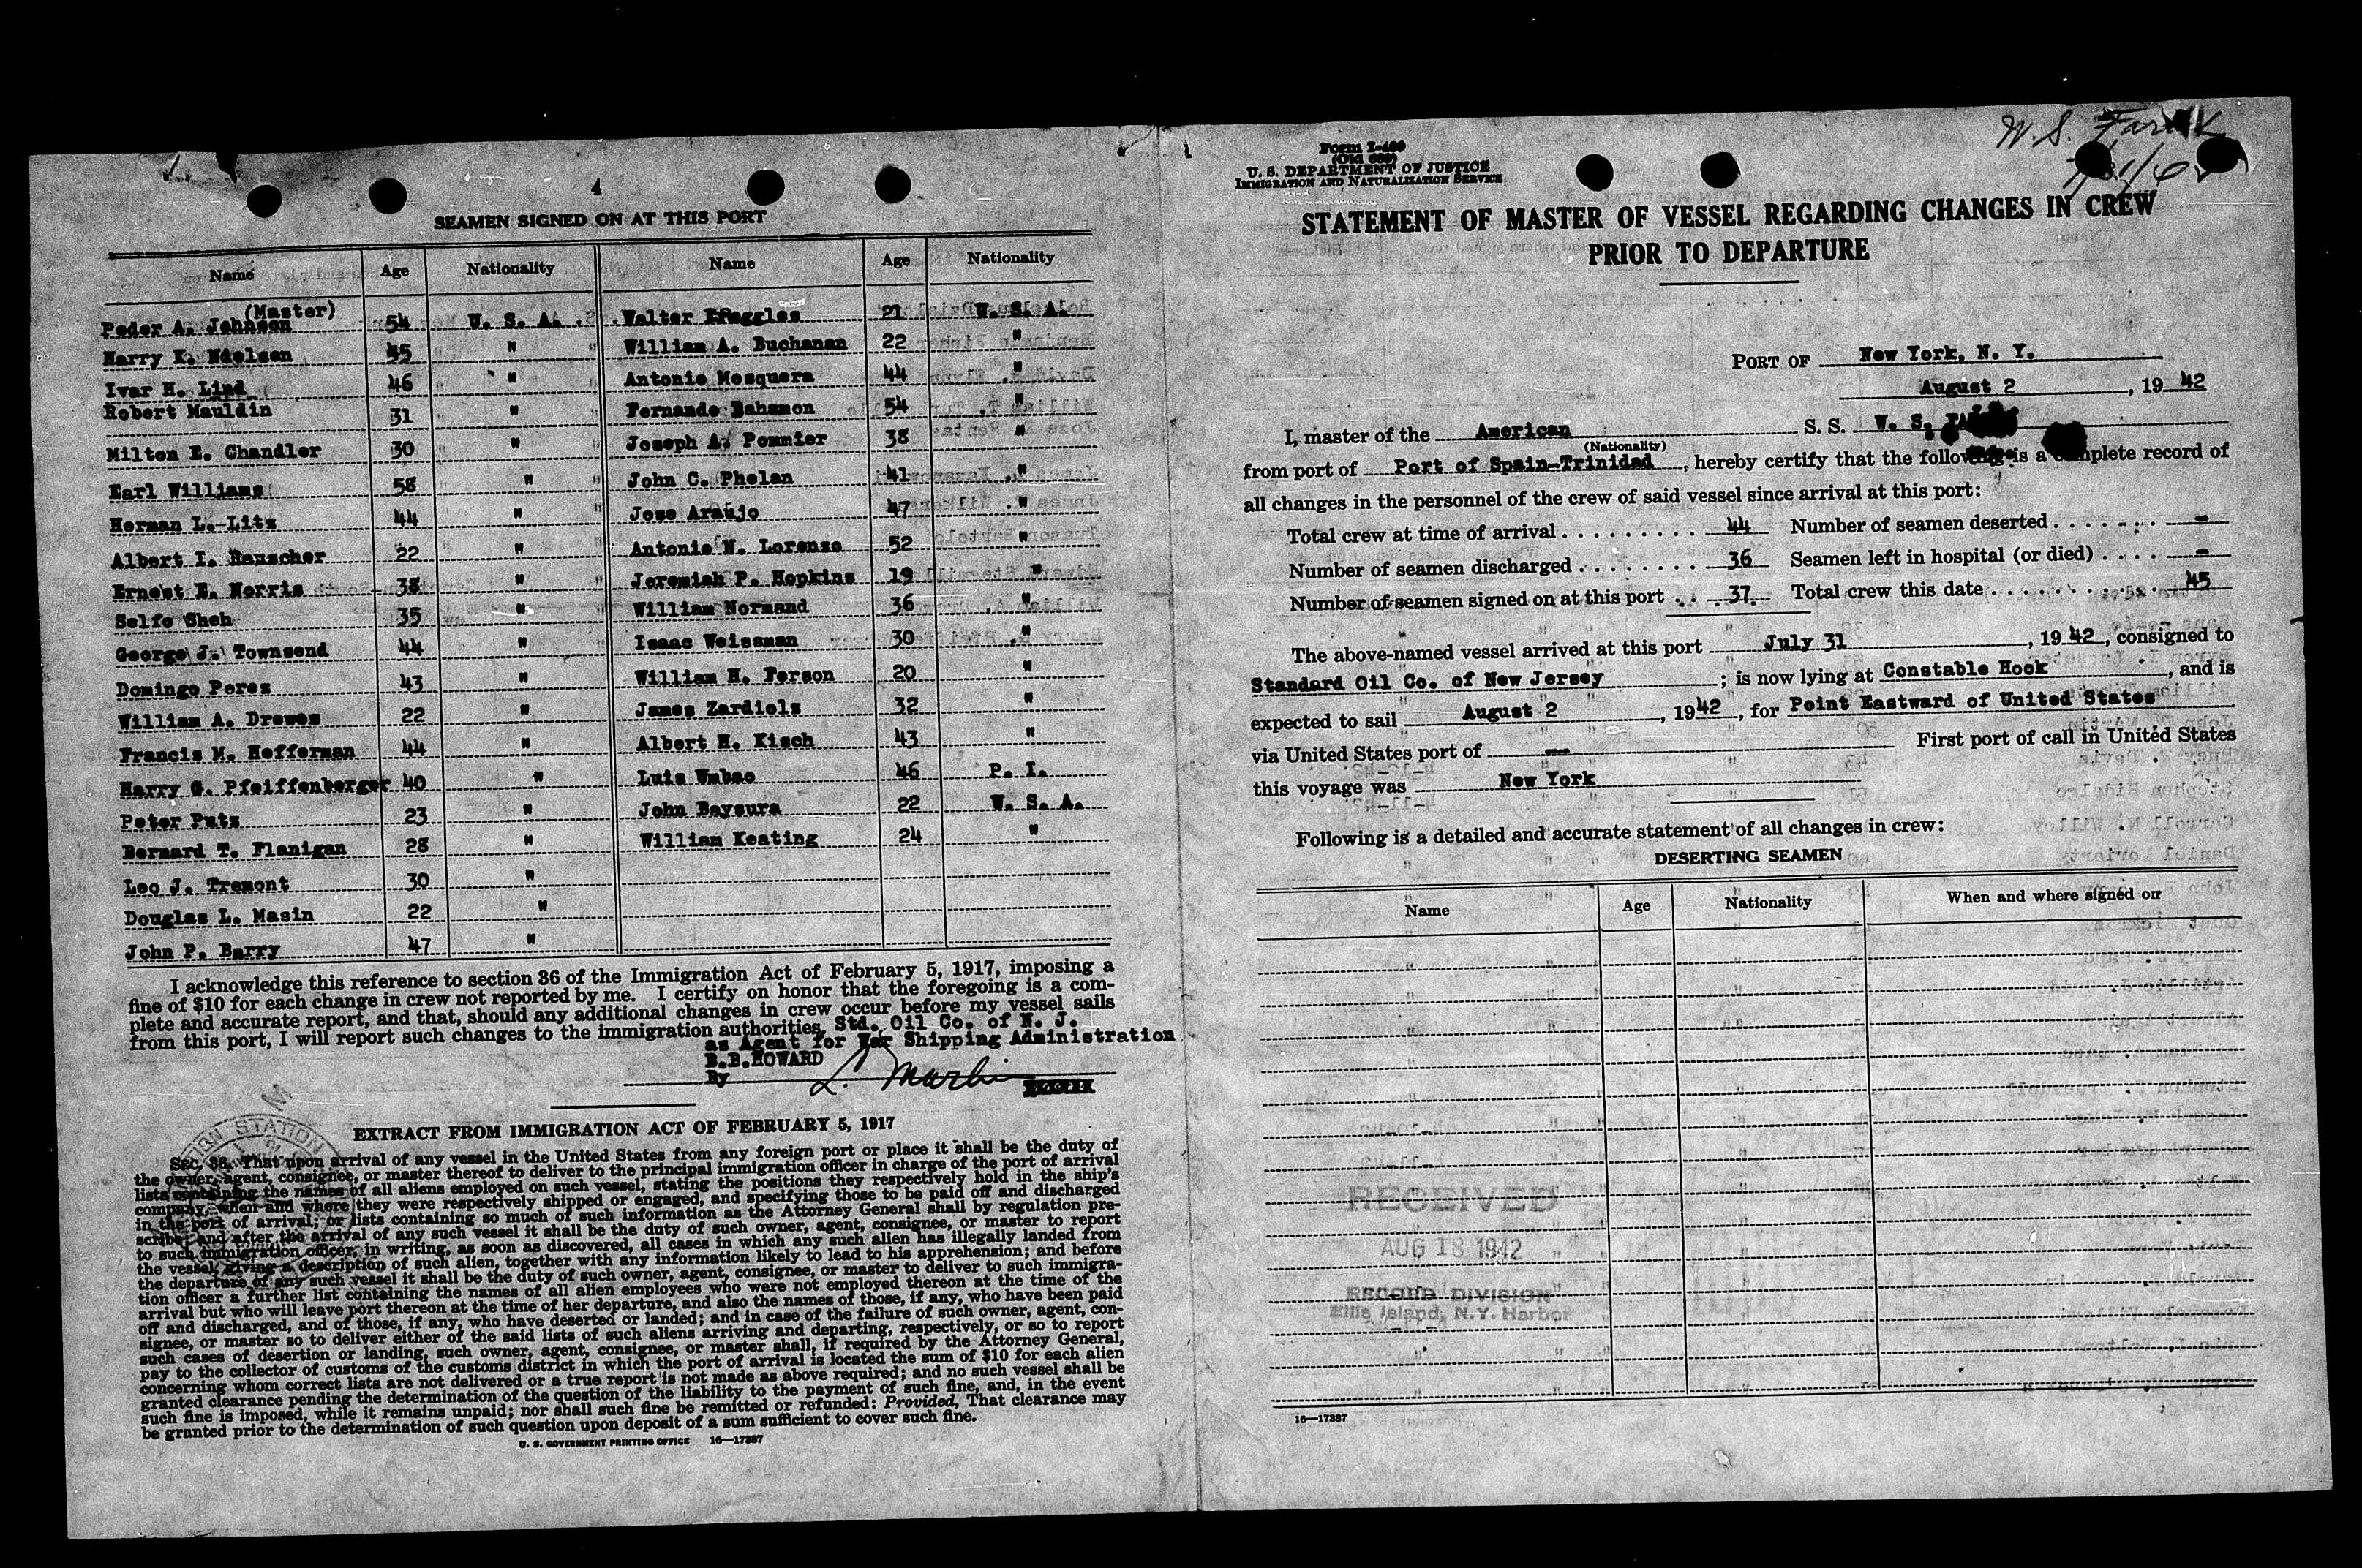 4
SEAMEN SIGNED ON AT THIS PORT
Name Age Nationality Name Age Nationality
(Master)
Peder A. Johnson 54 U. S. A. Walter Ruggles 21 U. S. A.
Harry K. Nielsen 45 " William A. Buchanan 22 "
Ivar H. Lind 46 " Antonio Mosquera 44 "
Robert Mauldin 31 " Fernando Bahamon 54 "
Milton E. Chandler 30 " Joseph A. Pommier 38 "
Earl Williams 58 " John C. Phelan 41 "
Herman L. Litz 44 " Jose Araujo 47 "
Albert I. Rauscher 22 " Antonio N. Lorenzo 52 "
Ernest E. Norris 38 " Jeremiah P. Hopkins 19 "
Selfo Sheh 35 " William Normand 36 "
George J. Townsend 44 " Isaac Weissman 30 "
Domingo Perez 43 " William H. Ferson 20 "
William A. Drewes 22 " James Zardiels 32 "
Francis M. Hefferman 44 " Albert H. Kisch 43 "
Harry G. Pfeiffenberger 40 " Luis Umbao 46 P. I.
Peter Putz 23 " John Baysura 22 U. S. A.
Bernard T. Flanigan 28 " William Keating 24 "
Leo J. Tremont 30 "
Douglas L. Masin 22 "
John P. Barry 47 "
I acknowledge this reference to section 36 of the Immigration Act of February 5, 1917, imposing a
fine of $10 for each change in crew not reported by me. I certify on honor that the foregoing is a com-
plete and accurate report, and that, should any additional changes in crew occur before my vessel sails
from this port, I will report such changes to the immigration authorities. Std. Oil Co. of N. J.
as Agent for War Shipping Administration
B.B.HOWARD
By L. Martin
EXTRACT FROM IMMIGRATION ACT OF FEBRUARY 5, 1917
SEC. 36. That upon arrival of any vessel in the United States from any foreign port or place it shall be the duty of
the owner, agent, consignee, or master thereof to deliver to the principal immigration officer in charge of the port of arrival
lists containing the names of all aliens employed on such vessel, stating the positions they respectively hold in the ship's
company, when and where they were respectively shipped or engaged, and specifying those to be paid off and discharged
in the port of arrival; or lists containing so much of such information as the Attorney General shall by regulation pre-
scribe; and after the arrival of any such vessel it shall be the duty of such owner, agent, consignee, or master to report
to such immigration officer, in writing, as soon as discovered, all cases in which any such alien has illegally landed from
the vessel, giving a description of such alien, together with any information likely to lead to his apprehension; and before
the departure of any such vessel it shall be the duty of such owner, agent, consignee, or master to deliver to such immigra-
tion officer a further list containing the names of all alien employees who were not employed thereon at the time of the
arrival but who will leave port thereon at the time of her departure, and also the names of those, if any, who have been paid
off and discharged, and of those, if any, who have deserted or landed; and in case of the failure of such owner, agent, con-
signee, or master so to deliver either of the said lists of such aliens arriving and departing, respectively, or so to report
such cases of desertion or landing, such owner, agent, consignee, or master shall, if required by the Attorney General,
pay to the collector of customs of the customs district in which the port of arrival is located the sum of $10 for each alien
concerning whom correct lists are not delivered or a true report is not made as above required; and no such vessel shall be
granted clearance pending the determination of the question of the liability to the payment of such fine, and, in the event
such fine is imposed, while it remains unpaid; nor shall such fine be remitted or refunded: Provided, That clearance may
be granted prior to the determination of such question upon deposit of a sum sufficient to cover such fine.
U. S. GOVERNMENT PRINTING OFFICE 16—17387
W. S. Farish
7/31/42
Form I-489
(Old 689)
U. S. DEPARTMENT OF JUSTICE
IMMIGRATION AND NATURALIZATION SERVICE
STATEMENT OF MASTER OF VESSEL REGARDING CHANGES IN CREW
PRIOR TO DEPARTURE
PORT OF New York, N. Y.
August 2, 1942
I, master of the American S. S. W. S.
(Nationality)
from port of Port of Spain-Trinidad, hereby certify that the following is a complete record of
all changes in the personnel of the crew of said vessel since arrival at this port:
Total crew at time of arrival . . . . . . . . . 44 Number of seamen deserted . . . . . . . -
Number of seamen discharged . . . . . . . . 36 Seamen left in hospital (or died) . . . . -
Number of seamen signed on at this port . . . 37 Total crew this date . . . . . . . . . . . 45
The above-named vessel arrived at this port July 31, 1942, consigned to
Standard Oil Co. of New Jersey; is now lying at Constable Hook, and is
expected to sail August 2, 1942, for Point Eastward of United States
via United States port of — First port of call in United States
this voyage was New York
Following is a detailed and accurate statement of all changes in crew:
DESERTING SEAMEN
Name Age Nationality When and where signed on
RECEIVED
AUG 18 1942
RECORD DIVISION
Ellis Island, N.Y. Harbor
16—17387